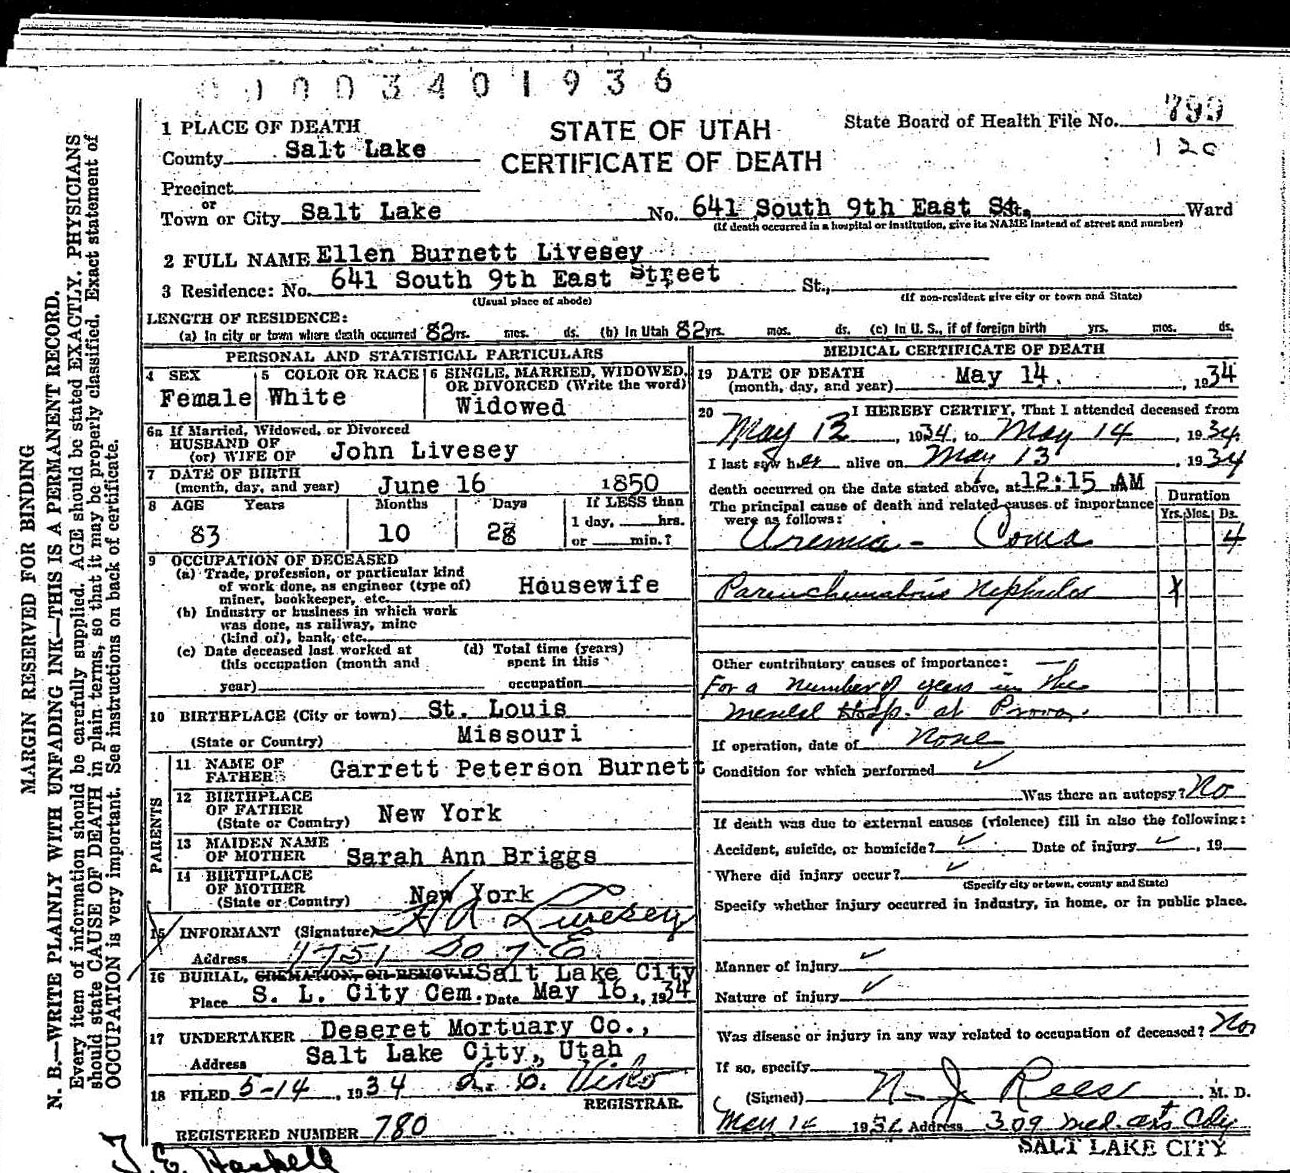 01003401936
1 PLACE OF DEATH
STATE OF UTAH
State Board of Health File No. 799
County Salt Lake
CERTIFICATE OF DEATH
120
Precinct
or
Town or City Salt Lake No. 641 South 9th East St. Ward
(If death occurred in a hospital or institution, give its NAME instead of street and number)
2 FULL NAME Ellen Burnett Livesey
3 Residence: No. 641 South 9th East Street St.,
(Usual place of abode) (If non-resident give city or town and State)
LENGTH OF RESIDENCE:
(a) In city or town where death occurred 82 yrs. mos. ds. (b) In Utah 82 yrs. mos. ds. (c) In U. S., if of foreign birth yrs. mos. ds.
PERSONAL AND STATISTICAL PARTICULARS
4 SEX Female
5 COLOR OR RACE White
6 SINGLE, MARRIED, WIDOWED, OR DIVORCED (Write the word)
Widowed
6a If Married, Widowed, or Divorced
HUSBAND OF
(or) WIFE OF John Livesey
7 DATE OF BIRTH
(month, day, and year) June 16 1850
8 AGE Years Months Days If LESS than
83 10 28 1 day, hrs.
or min.?
9 OCCUPATION OF DECEASED
(a) Trade, profession, or particular kind
of work done, as engineer (type of)
miner, bookkeeper, etc. Housewife
(b) Industry or business in which work
was done, as railway, mine
(kind of), bank, etc.
(c) Date deceased last worked at
this occupation (month and
year)
(d) Total time (years)
spent in this
occupation
10 BIRTHPLACE (City or town) St. Louis
(State or Country) Missouri
PARENTS
11 NAME OF
FATHER Garrett Peterson Burnett
12 BIRTHPLACE
OF FATHER
(State or Country) New York
13 MAIDEN NAME
OF MOTHER Sarah Ann Briggs
14 BIRTHPLACE
OF MOTHER
(State or Country) New York
15 INFORMANT (Signature) H A Livesey
Address 1751 So 7 E.
16 BURIAL, CREMATION, OR REMOVAL Salt Lake City
Place S. L. City Cem. Date May 16, 1934
17 UNDERTAKER Deseret Mortuary Co.,
Address Salt Lake City, Utah
18 FILED 5-14, 1934
REGISTRAR.
REGISTERED NUMBER 780
T. E. Haskell
MEDICAL CERTIFICATE OF DEATH
19 DATE OF DEATH
(month, day, and year) May 14. , 1934
20 I HEREBY CERTIFY, That I attended deceased from
May 12, 1934, to May 14, 1934
I last saw her alive on May 13 1934
death occurred on the date stated above, at 12:15 AM
The principal cause of death and related causes of importance
were as follows:
Duration
Yrs. Mos. Ds.
Uremia - Coma 4
Parenchymatous Nephritis X
Other contributory causes of importance:
For a number of years in the
Mental Hosp. at Provo.
If operation, date of None
Condition for which performed ✓
Was there an autopsy? No
If death was due to external causes (violence) fill in also the following:
Accident, suicide, or homicide? ✓ Date of injury ✓, 19
Where did injury occur? ✓
(Specify city or town, county and State)
Specify whether injury occurred in industry, in home, or in public place.
Manner of injury ✓
Nature of injury ✓
Was disease or injury in any way related to occupation of deceased? No
If so, specify
(Signed) N. J. Rees M. D.
May 14 1934 Address 309 Med. Arts
SALT LAKE CITY
MARGIN RESERVED FOR BINDING
N. B.—WRITE PLAINLY WITH UNFADING INK—THIS IS A PERMANENT RECORD.
Every item of information should be carefully supplied. AGE should be stated EXACTLY. PHYSICIANS
should state CAUSE OF DEATH in plain terms, so that it may be properly classified. Exact statement of
OCCUPATION is very important. See instructions on back of certificate.